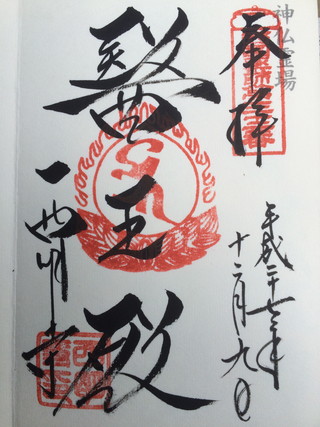 神仏霊場
奉拝
平成二十七年
十二月九日
醫王殿
西明寺